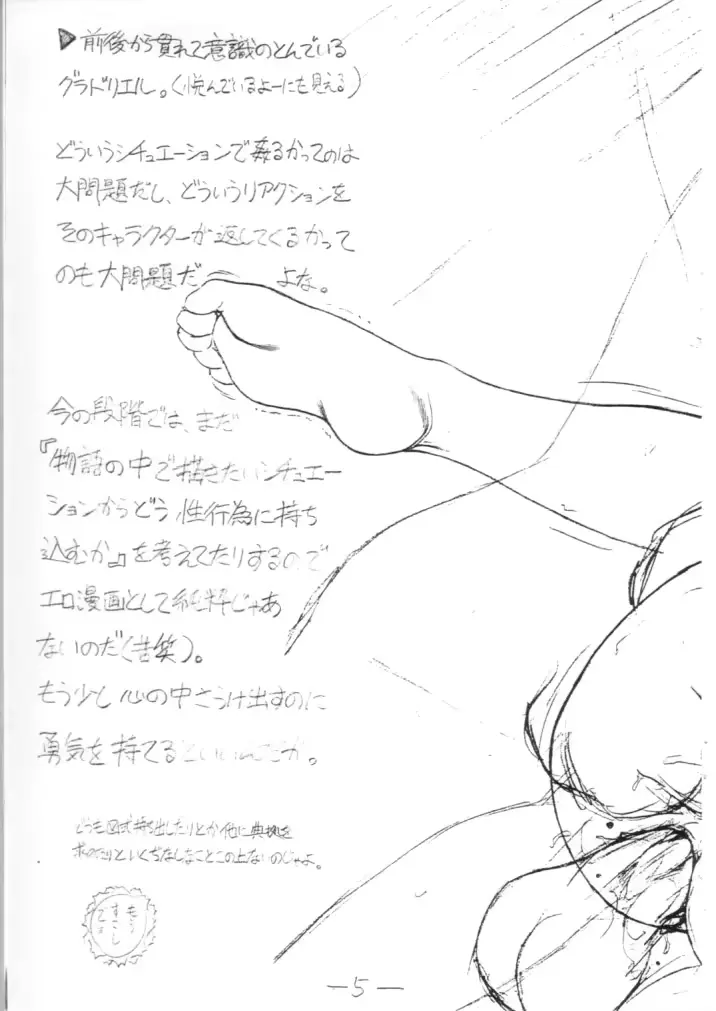 ▶前後から貫れて意識のとんでいる
グラドリエル。(悦んでいるよーにも見える)
どういうシチュエーションで姦るかってのは
大問題だし、どういうリアクションを
そのキャラクターが返してくるかって
のも大問題だ よな。
今の段階では、まだ
『物語の中で描きたいシチュエー
ションからどう性行為に持ち
込むか』を考えてたりするので
エロ漫画として純粋じゃあ
ないのだ(苦笑)。
もう少し心の中さらけ出すのに
勇気を持てるといいんだが。
どうも図式持ち出したりとか他に典拠を
求めたりといくぢなしなことこの上ないのじゃよ。
もう
すこし
でよ
—5—